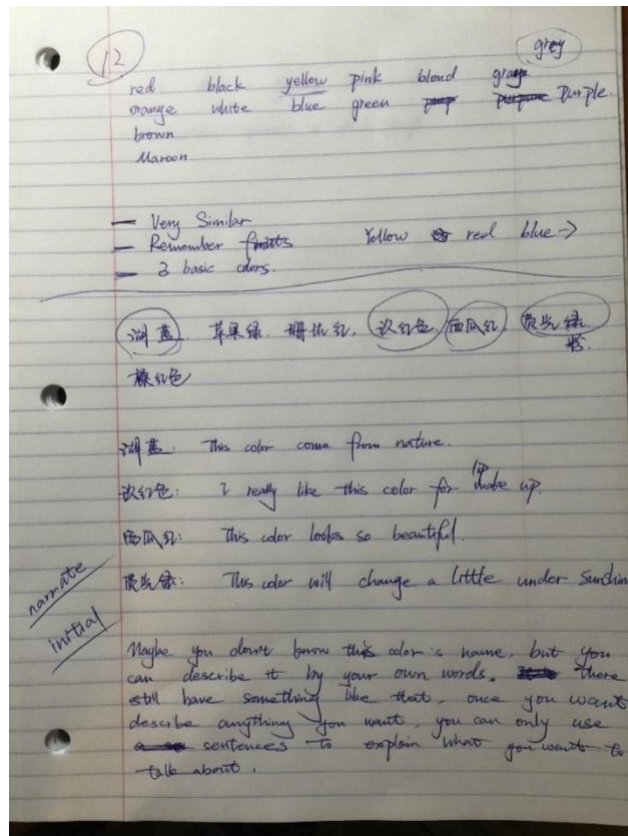 12
grey
red black yellow pink blond gray
orange white blue green purple.
brown
Maroon
Very Similar
Remember fruits Yellow red blue→
3 basic colors.
湖蓝. 苹果绿. 珊瑚红, 玫红色, 西瓜红, 荧光绿
橡红色
湖蓝: This color come from nature.
玫红色: I really like this color for lip make up.
西瓜红: This color looks so beautiful.
荧光绿: This color will change a little under Sunshin
narrate
initial
Maybe you down't know this color's name, but you
can describe it by your own words. there
still have something like that, once you want
describe anything you want, you can only use
sentences to explain what you want to
talk about.